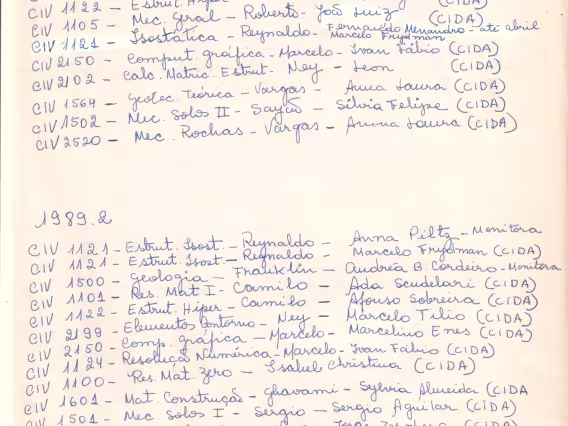 CIV 1122 - Estrut. Hiper (CIDA)
CIV 1105 - Mec. Geral - Roberto - João Luiz (CIDA)
CIV 1121 - Isostática - Reynaldo - Fernando Menandro - até abril
Marcelo Frydman
CIV 2150 - Comput. gráfica - Marcelo - Ivan Fábio (CIDA)
CIV 2102 - Calc. Matric. Estrut. - Ney - Leon (CIDA)
CIV 1564 - Geotec. Teórica - Vargas - Anna Laura (CIDA)
CIV 1502 - Mec. Solos II - Sayão - Silvia Felipe (CIDA)
CIV 2520 - Mec. Rochas - Vargas - Anna Laura (CIDA)
1989.2
CIV 1121 - Estrut. Isost. - Reynaldo - Anna Piltz - Monitora
CIV 1121 - Estrut. Isost - Reynaldo - Marcelo Frydman (CIDA)
CIV 1500 - Geologia - Franklin - Andréa B. Cordeiro - Monitora
CIV 1101 - Res. Mat I - Camilo - Ada Scudelari (CIDA)
CIV 1122 - Estrut. Hiper - Camilo - Afonso Sobreira (CIDA)
CIV 2199 - Elementos Contorno - Ney - Marcelo Tilio (CIDA)
CIV 2150 - Comp. gráfica - Marcelo - Marcelino Enes (CIDA)
CIV 1124 - Resolução Numérica - Marcelo - Ivan Fábio (CIDA)
CIV 1100 - Res. Mat. Zero - Isabel Christina (CIDA)
CIV 1601 - Mat. Construção - Ghavami - Sylvia Almeida (CIDA
CIV 1501 - Mec Solos I - Sergio - Sergio Aguilar (CIDA)